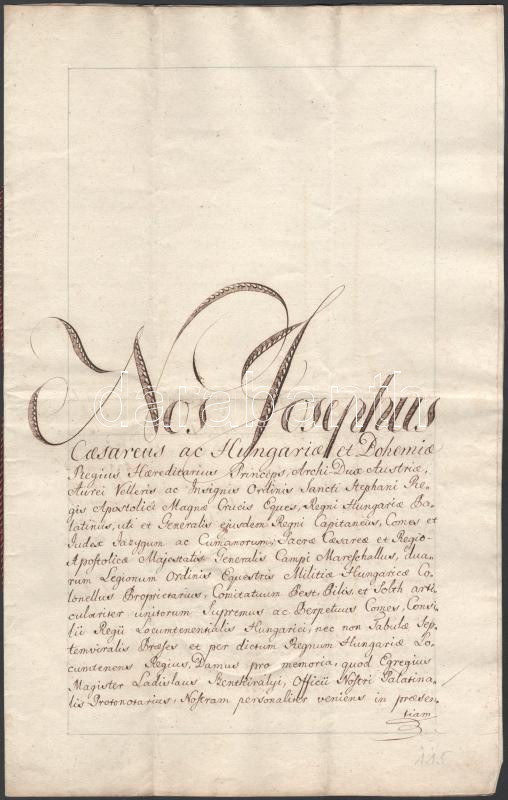 Nos Josephus
Cæsareus ac Hungariæ et Bohemiæ
Regius Hæreditarius Princeps, Archi-Dux Austriæ,
Aurei Velleris ac Insignis Ordinis Sancti Stephani Re-
gis Apostolici Magnæ Crucis Eques, Regni Hungariæ Pa-
latinus, uti et Generalis ejusdem Regni Capitaneus, Comes et
Judex Jazygum ac Cumanorum; Sacræ Cæsareæ et Regio-
Apostolicæ Majestatis Generalis Campi Mareschallus, dua-
rum Legionum Ordinis Equestris Militiæ Hungaricæ Co-
lonellus Proprietarius, Comitatuum Pest, Pilis, et Solth arti-
culariter unitorum Supremus ac Perpetuus Comes, Consi-
lii Regii Locumtenentialis Hungarici, nec non Tabulæ Sep-
temviralis Præses et per dictum Regnum Hungariæ Lo-
cumtenens Regius, Damus pro memoria, quod Egregius
Magister Ladislaus Szentkirályi, Officii Nostri Palatina-
lis Protonotarius, Nostram personaliter veniens in præsen-
tiam
115